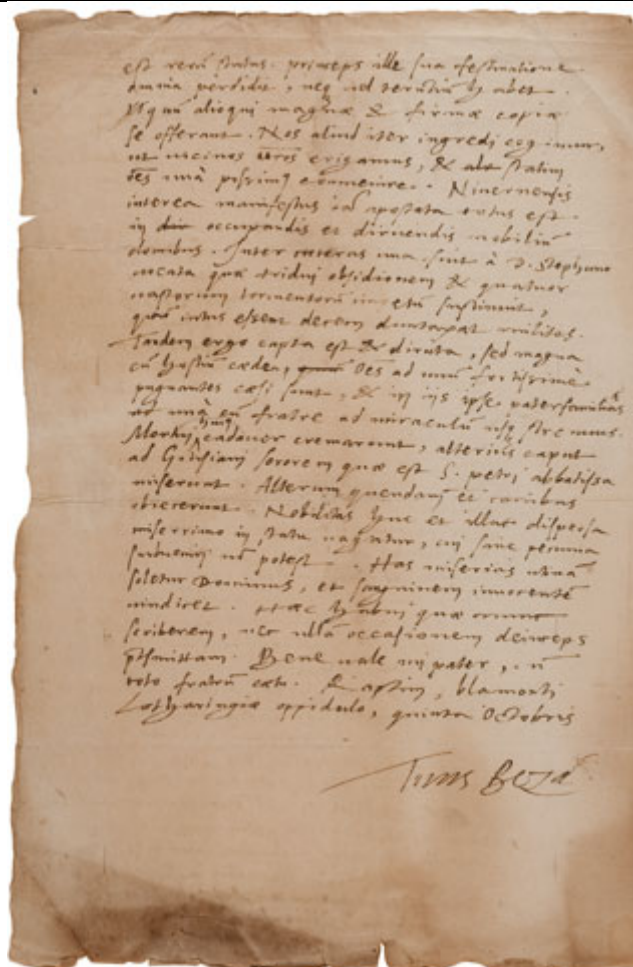 est rerū status. princeps ille sua festinatione
omnia perdidit, neq ad habet.
alioqui magnæ & firmæ copiæ
se offerant. Nos aliud iter ingredi cogimur,
ut uicinos erigamus, & statim
oēs unà Niuernensis
interea manifestus apostata est
in occupandis et diruendis nobiliū
domibus. Inter una fuit à D. Stephano
uocata quæ tridui obsidionem & quatuor
tormentorū sustinuit,
quū intus essent decem duntaxat milites.
Tandem ergo capta est & diruta, sed magna
cū hostiū cæde, Oēs ad unū fortissimè
pugnantes cæsi sunt, & in iis ipse paterfamiliâs
unà cū fratre ad miraculū usq strenuus.
cadauer cremarunt, alterius caput
ad Guisiani sororem quæ est S. petri abbatissa
miserunt. Alterum quendam et canibus
obiecerunt. Nobilitas huc et illuc dispersa
miserrimo in statu uagatur, cui sine pecunia
nō potest. Has miserias
soletur Dominus, et sanguinem innocentē
uindicet. Hæc habui quæ
scriberem, nec ullā occasionem deinceps
Bene uale mi pater, cū
toto fratrū cœtu. blamonti
Lotharingiæ oppidulo, quinta Octobris
Tuus Beza